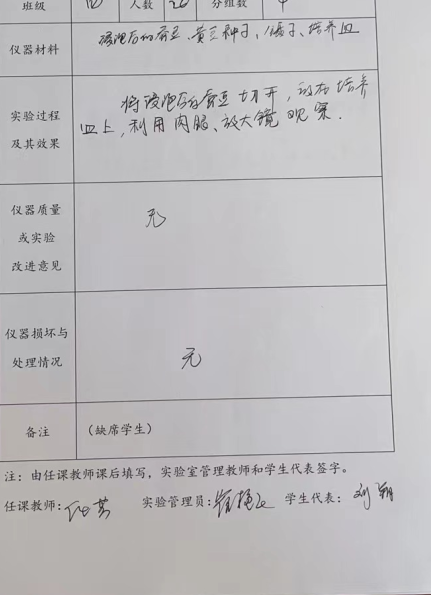 班级 人数 分组数
仪器材料 浸泡后的蚕豆、黄豆种子、镊子、培养皿
实验过程
及其效果
将浸泡后的蚕豆切开，放在培养
皿上，利用肉眼、放大镜观察.
仪器质量
或实验
改进意见
无
仪器损坏与
处理情况
无
备注 （缺席学生）
注：由任课教师课后填写，实验室管理教师和学生代表签字。
任课教师： 实验管理员： 学生代表：刘翔